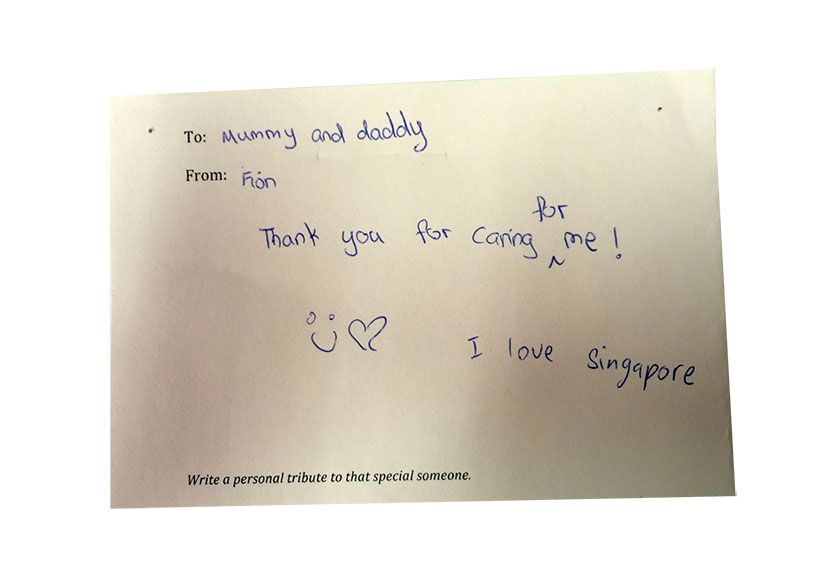 To: Mummy and daddy
From: Fion
Thank you for caring for me!
I love Singapore
Write a personal tribute to that special someone.